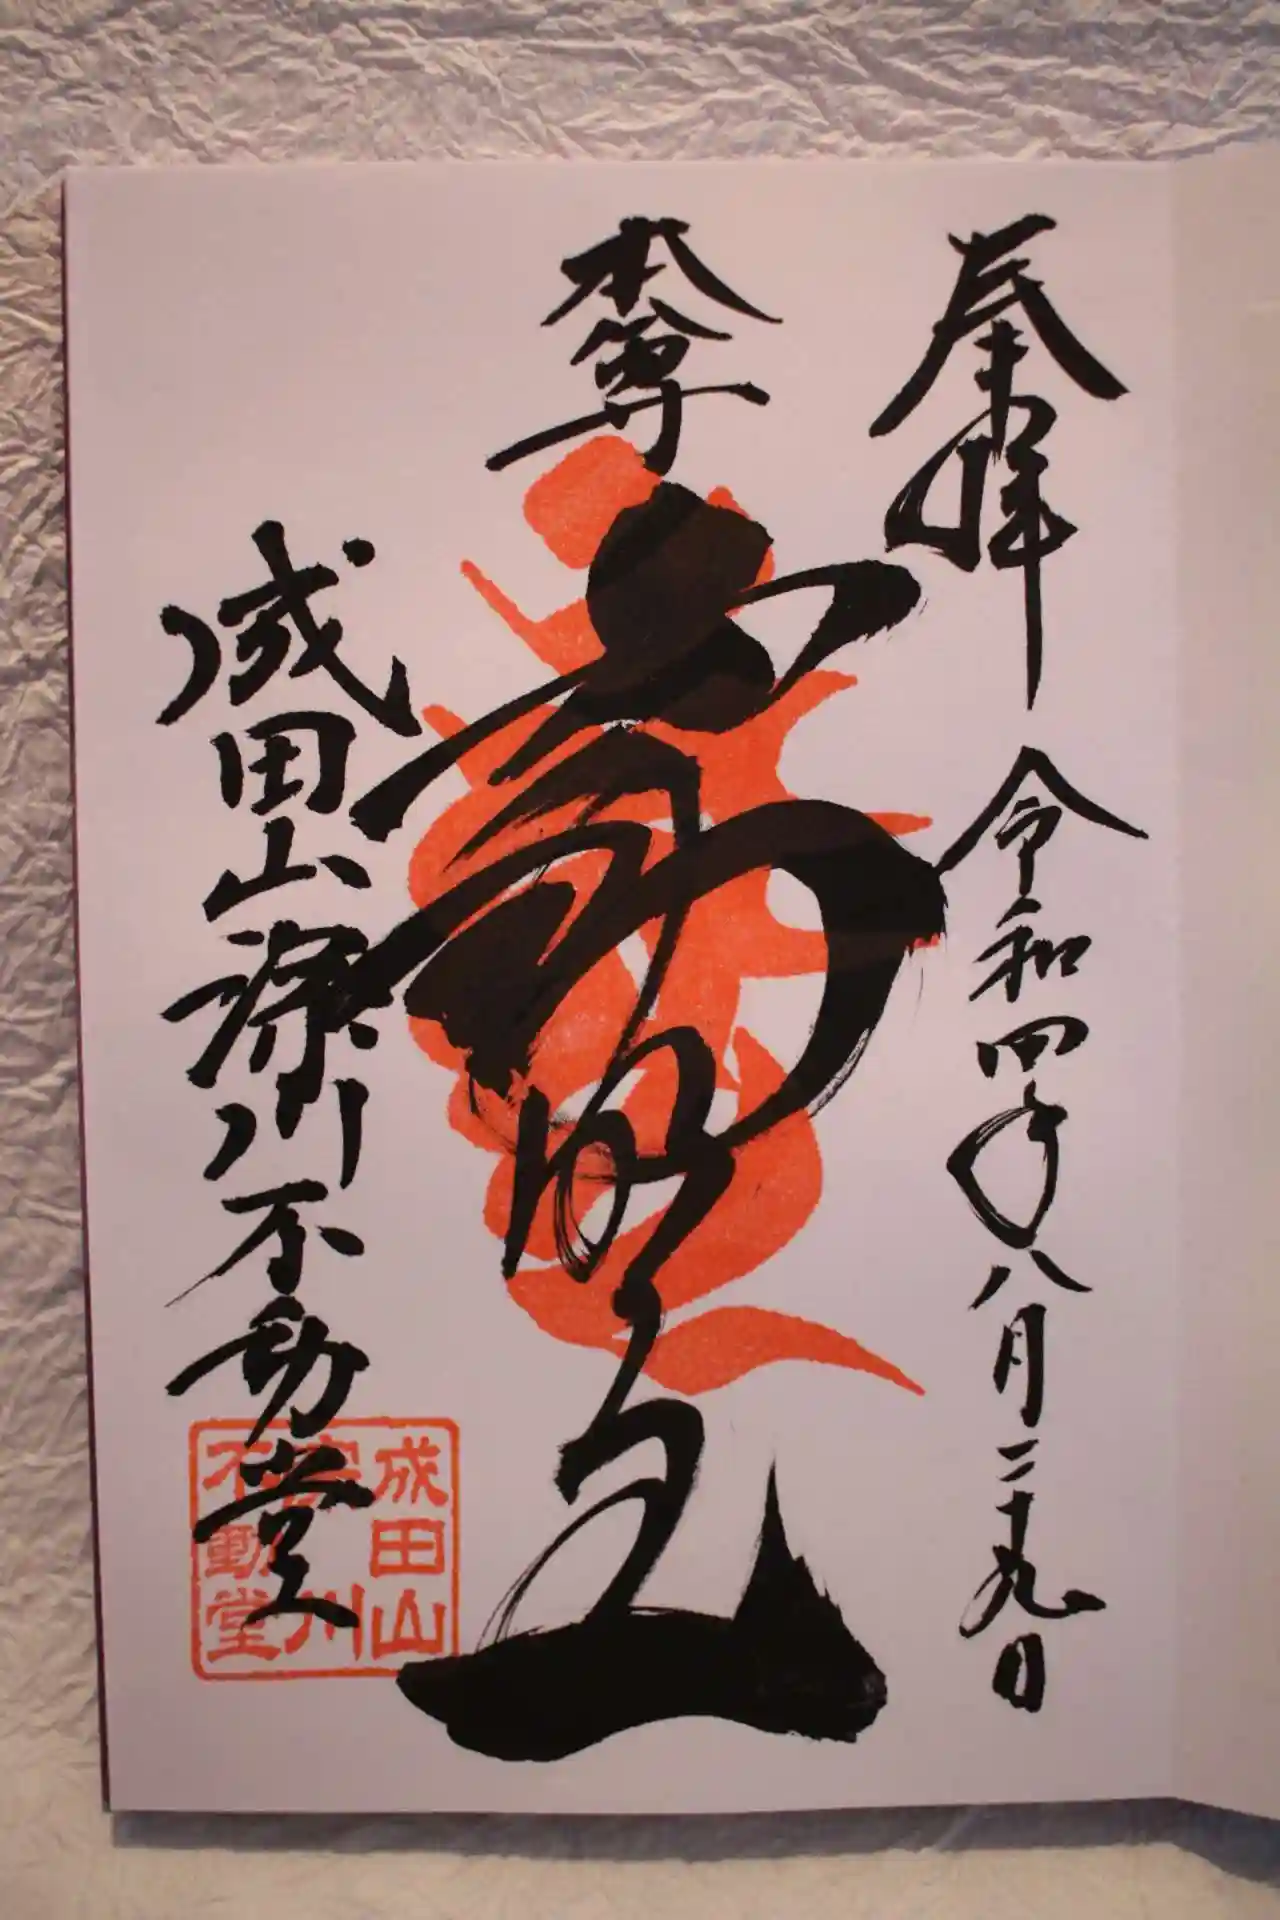 奉拝
令和四年八月二十九日
本尊
不動明王
成田山深川不動堂
成田山
深川
不動堂